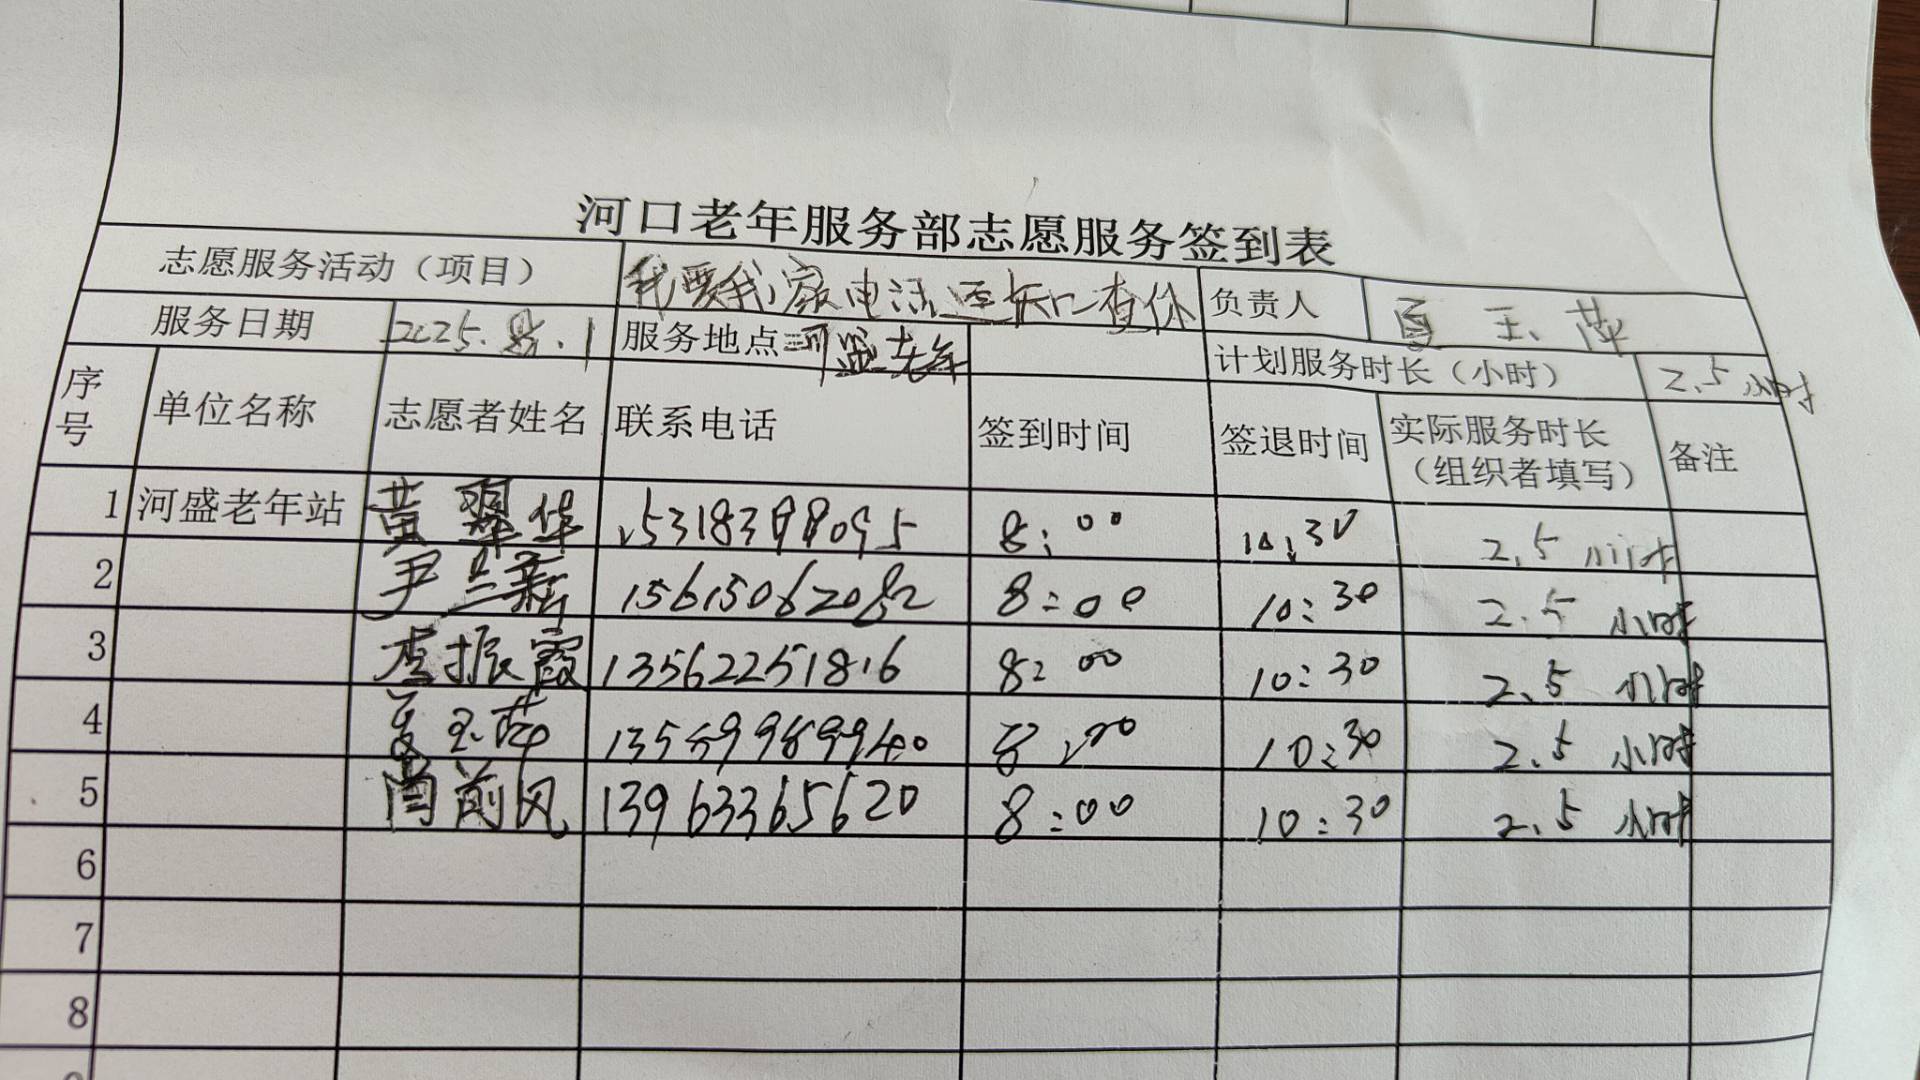 河口老年服务部志愿服务签到表
志愿服务活动（项目） 负责人 夏玉萍
服务日期 2025. .1 服务地点 河盛老年 计划服务时长（小时） 2.5小时
序号 单位名称 志愿者姓名 联系电话 签到时间 签退时间 实际服务时长（组织者填写） 备注
1 河盛老年站 黄翠华 15318399095 8:00 10:30 2.5小时
2 尹兰新 15615062082 8:00 10:30 2.5小时
3 李振霞 13562251816 8:00 10:30 2.5小时
4 夏玉萍 8:00 10:30 2.5小时
5 前风 13963365620 8:00 10:30 2.5小时
6
7
8